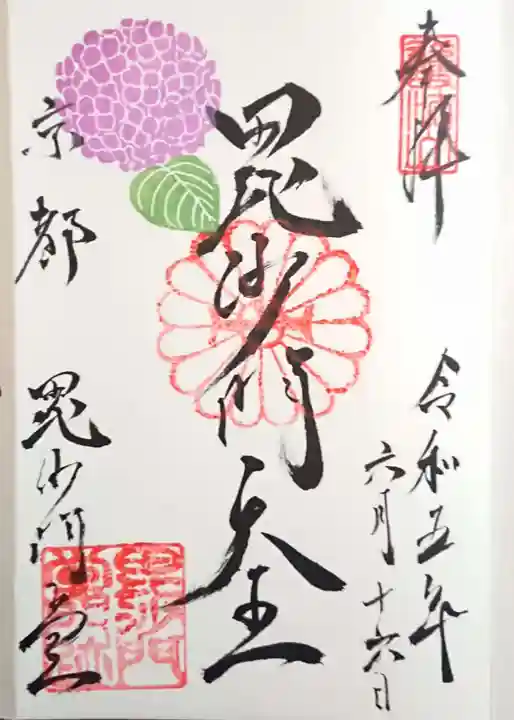 奉拝
令和五年
六月十六日
毘沙門天王
京都 毘沙門堂